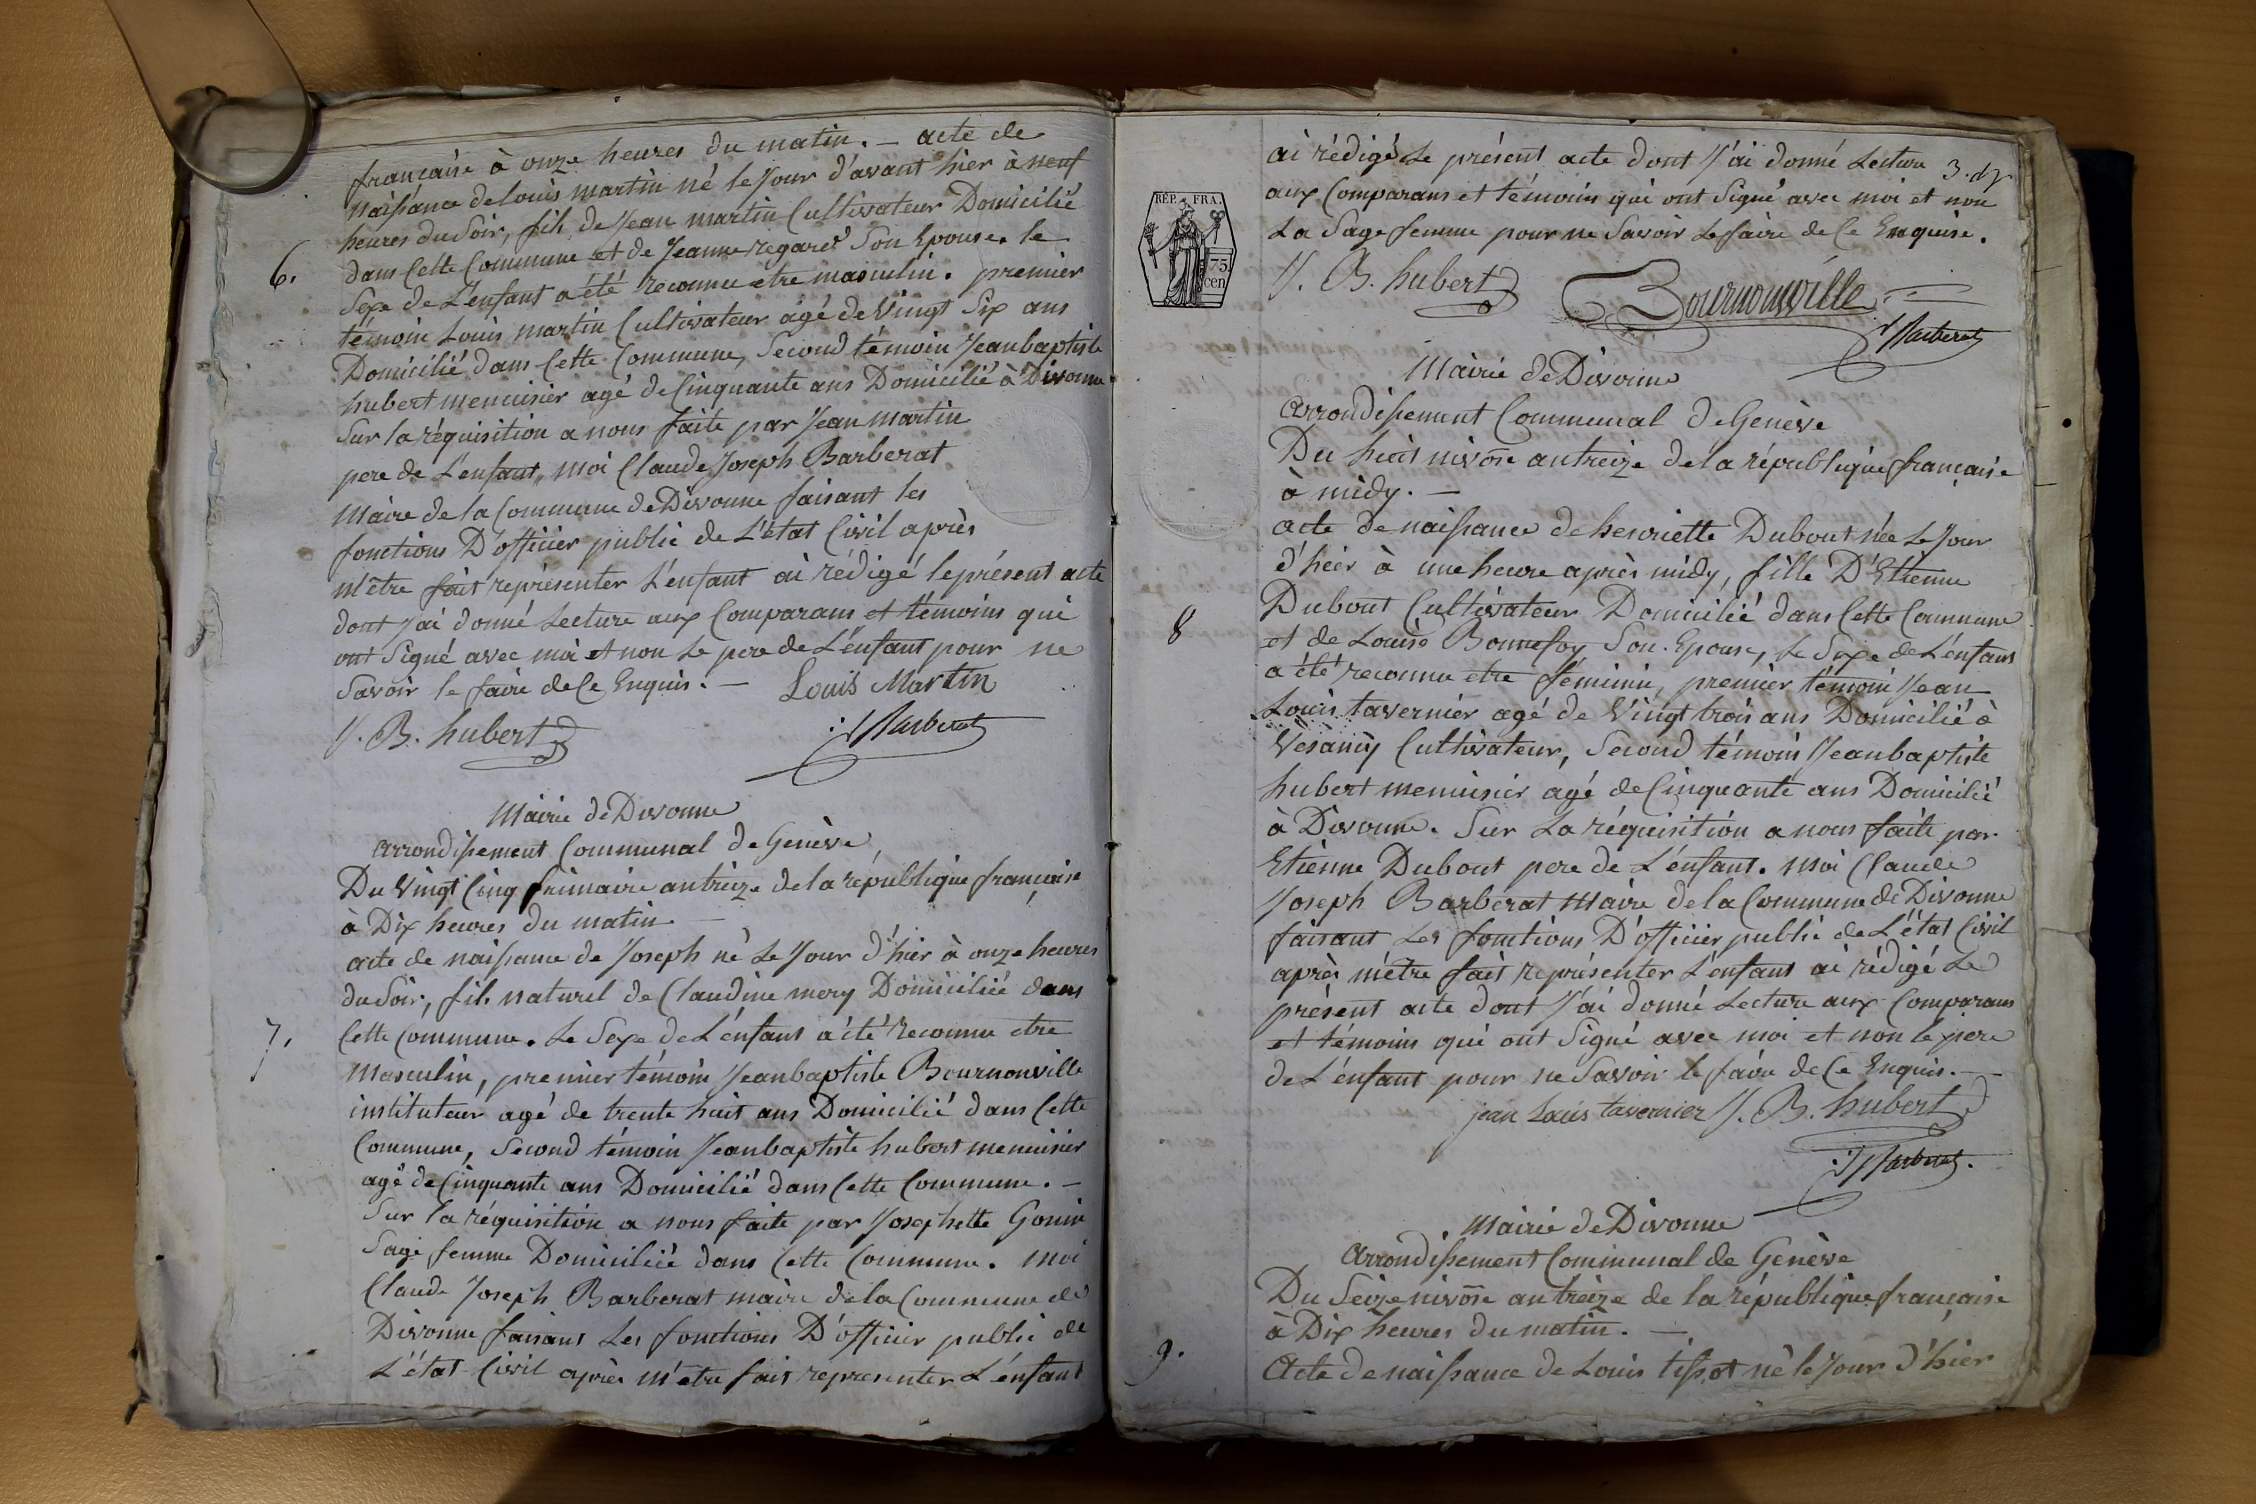 française à onze heures du matin. — acte de
naissance de Louis martin né le jour d'avant hier à neuf
heures du Soir, fils de Jean martin Cultivateur Domicilié
dans Cette Commune et de Jeanne regard Son Epouse. le
6.
Sexe de L'enfant a été reconnu etre masculin. premier
temoin Louis martin Cultivateur agé de Vingt Six ans
Domicilié dans Cette Commune, Second témoin Jean baptiste
hubert menuisier agé de Cinquante ans Domicilié à Divonne
Sur la réquisition a nous faite par Jean martin
pere de L'enfant, Moi Claude Joseph Barberat
Maire de la Commune de Divonne faisant les
fonctions D'officier public de L'état Civil après
m'être fait représenter L'enfant ai rédigé le présent acte
dont J'ai donné Lecture aux Comparans et témoins qui
ont Signé avec moi et non Le pere de L'enfant pour ne
Savoir le faire de Ce Enquis. —
Louis Martin
J. B. hubert
Barberat
Mairie de Divonne
arrondissement Communal de Genève
Du Vingt Cinq frimaire an treize de la république française
à Dix heures du matin. —
acte de naissance de Joseph né Le Jour d'hier à onze heures
du Soir, fils naturel de Claudine mery Domiciliée dans
7.
Cette Commune. Le Sexe de L'enfant a été reconnu etre
Masculin, premier témoin Jean baptiste Bournonville
instituteur agé de trente huit ans Domicilié dans Cette
Commune, Second témoin Jean baptiste hubert menuisier
agé de Cinquante ans Domicilié dans Cette Commune. —
Sur la réquisition a nous faite par Josephette Gonin
Sage femme Domiciliée dans Cette Commune. moi
Claude Joseph Barberat maire de la Commune de
Divonne faisant Les fonctions D'officier public de
L'état Civil après M'etre fait representer L'enfant
ai rédigé Le présent acte dont J'ai donné Lecture
aux Comparans et témoins qui ont Signé avec moi et non
La Sage femme pour ne Savoir Le faire de Ce Enquise.
RÉP. FRA.
75
cen
J. B. hubert
Bournonville
Barberat
Mairie de Divonne
arrondissement Communal de Genève
Du huit nivôse an treize de la république française
à midy. —
acte de naissance de henriette Dubout née Le Jour
d'hier à une heure après midy, fille D'Etienne
Dubout Cultivateur Domicilié dans Cette Commune
8
et de Louise Bonnefoy Son Epouse, Le Sexe de L'enfant
a été reconnu etre féminin, premier témoin Jean
Louis tavernier agé de Vingt trois ans Domicilié à
Vesancy Cultivateur, Second témoin Jean baptiste
hubert menuisier agé de Cinquante ans Domicilié
à Divonne. Sur La réquisition a nous faite par
Etienne Dubout pere de L'enfant. Moi Claude
Joseph Barberat Maire de la Commune de Divonne
faisant Les fonctions D'officier public de L'état Civil
après m'être fait représenter L'enfant ai rédigé Le
présent acte dont J'ai donné Lecture aux Comparans
et témoins qui ont Signé avec moi et non le père
de L'enfant pour ne Savoir le faire de Ce Enquis. —
jean Louis tavernier J. B. hubert
Barberat
Mairie de Divonne
Arrondissement Communal de Genève
Du Seize nivôse an treize de la république française
à Dix heures du matin. —
9.
Acte de naissance de Louis tissot né le Jour d'hier